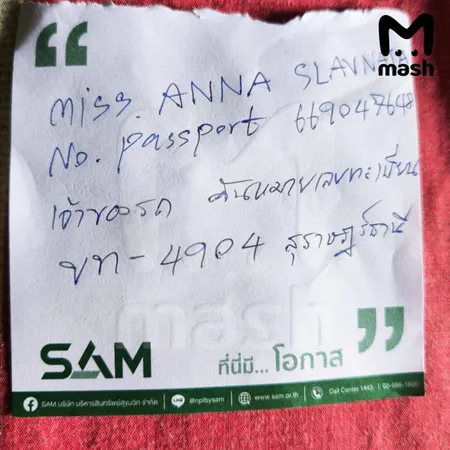 mash
Miss. ANNA
No. passport
เจ้าของรถ คันหมายเลขทะเบียน
ขท - 4904 สุราษฎร์ธานี
mash
SAM
ที่นี่มี... โอกาส
SAM บริษัท บริหารสินทรัพย์สุขุมวิท จำกัด @nplbysam www.sam.or.th Call Center 1443